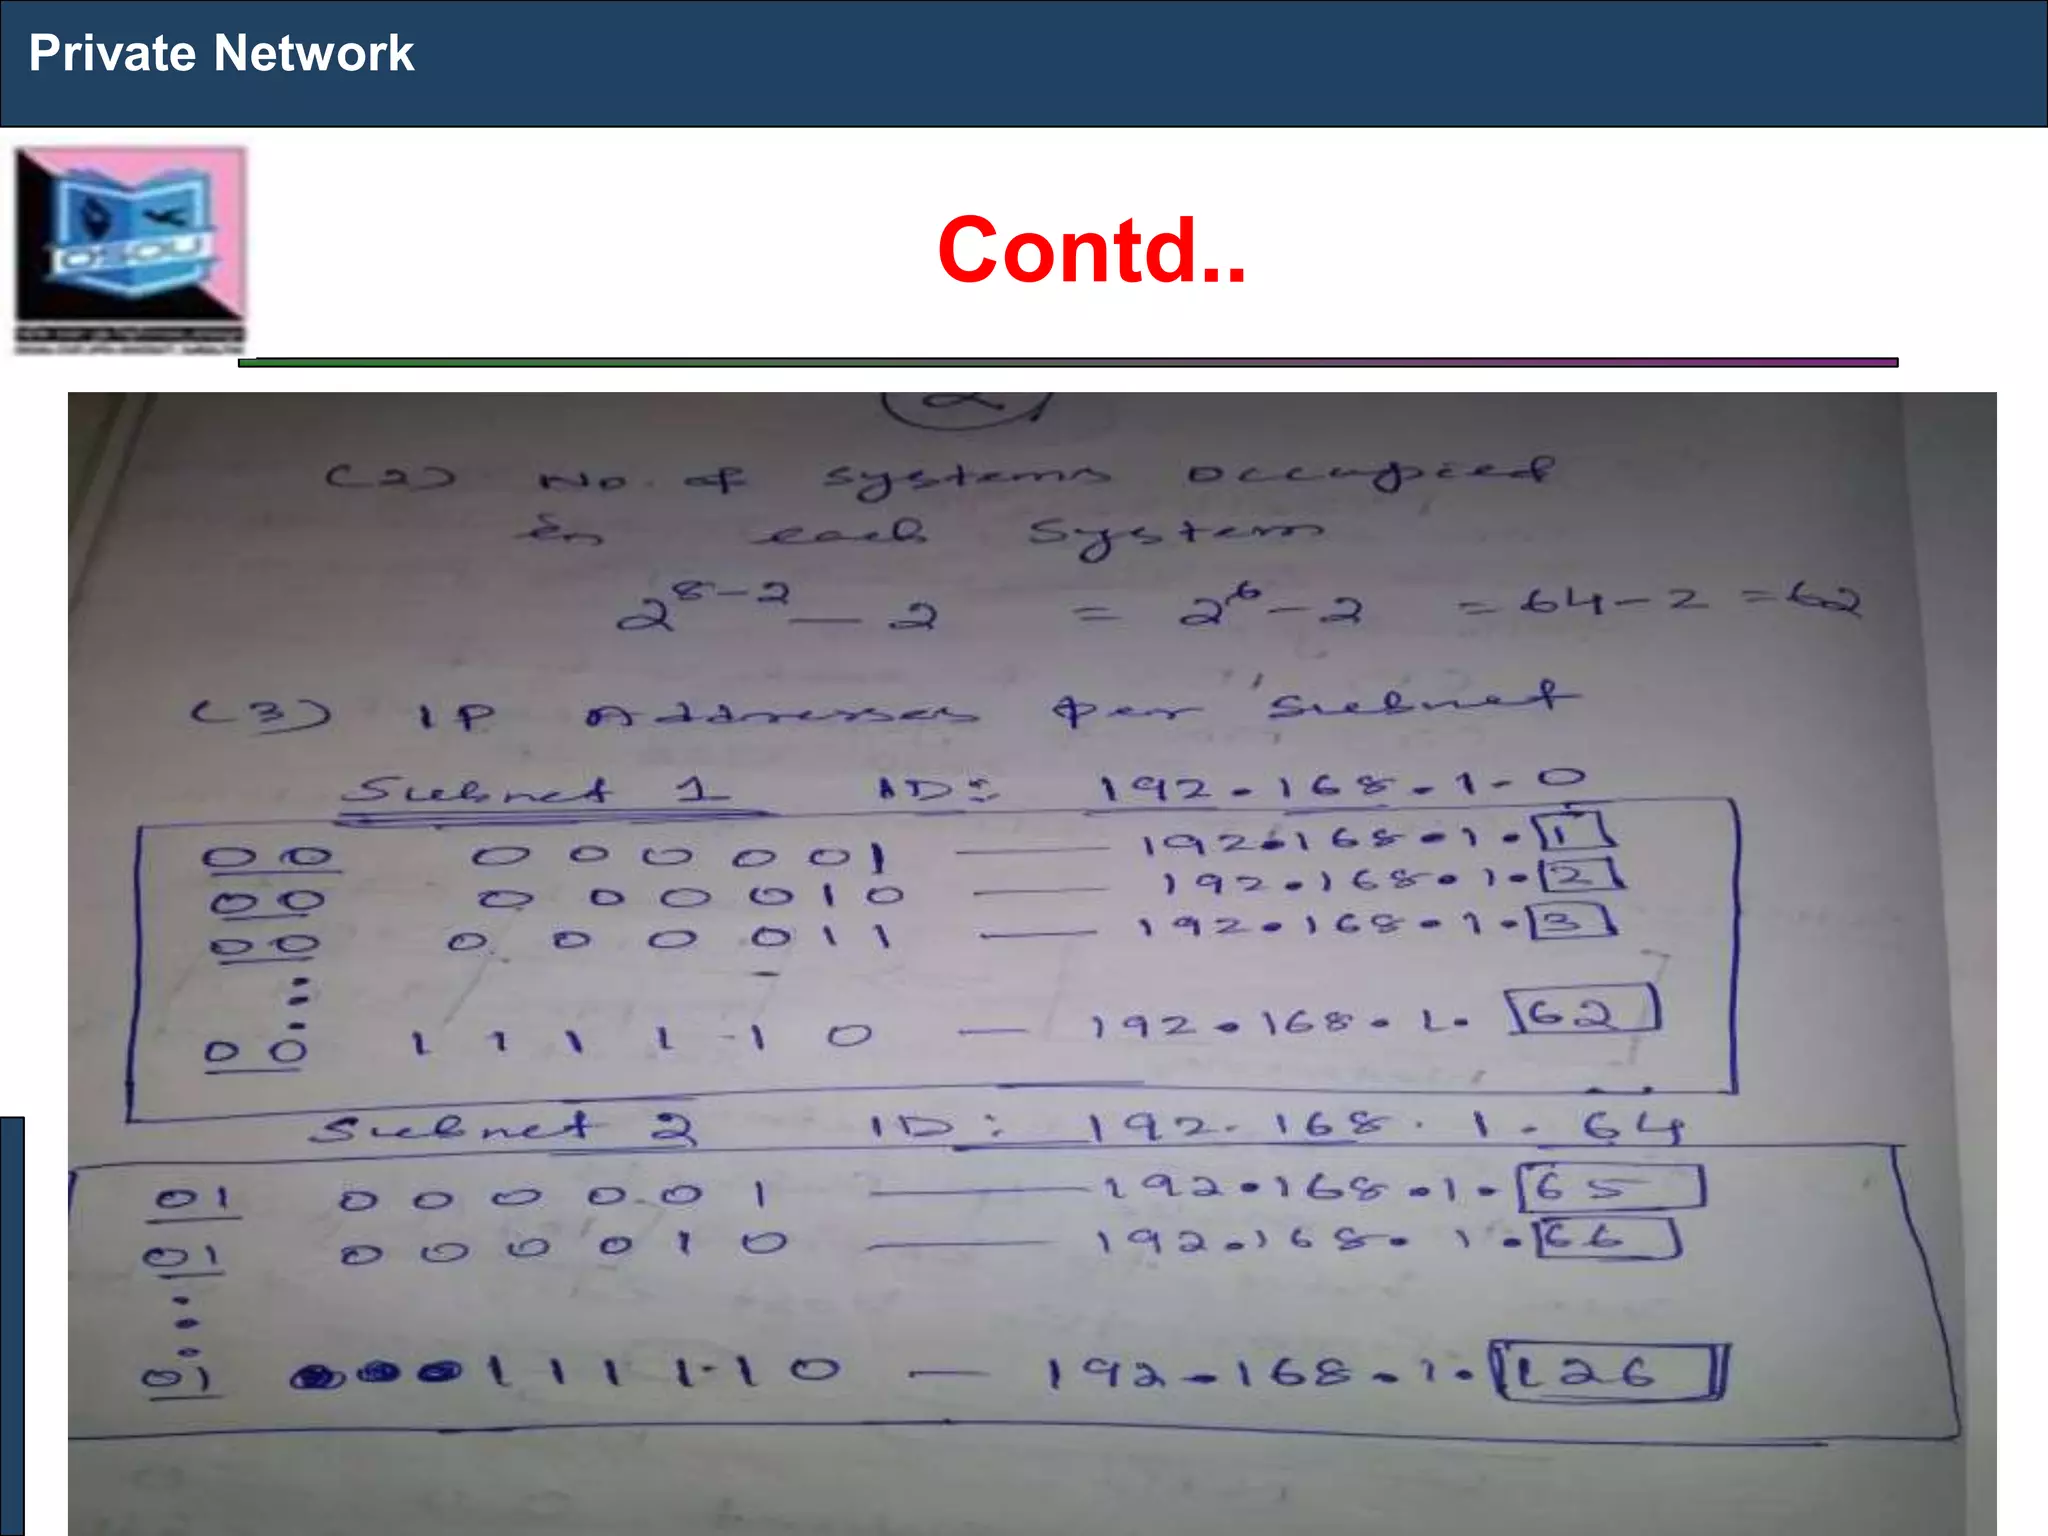 Private Network
OSOU
Contd..
2
(2) No. of systems occupied
in each system
2^8-2 - 2 = 2^6 - 2 = 64 - 2 = 62
(3) IP Addresses per subnet
Subnet 1 ID: 192.168.1.0
00 000001 — 192.168.1.1
00 000010 — 192.168.1.2
00 000011 — 192.168.1.3
00 111110 — 192.168.1.62
Subnet 2 ID: 192.168.1.64
01 000001 — 192.168.1.65
01 000010 — 192.168.1.66
01 111110 — 192.168.1.126